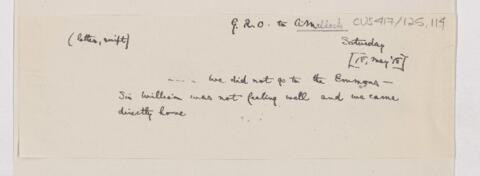 G.R.O. to A. Malloch CUS417/125,114
(letter, script)
Saturday
[15, May '15]
.... we did not go to the Emmons —
Sir William was not feeling well and we came
directly home